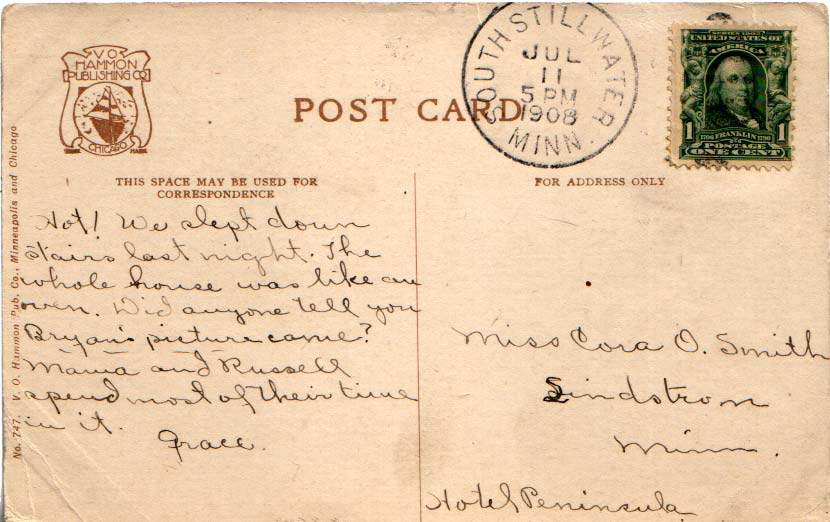 V.O.
HAMMON
PUBLISHING CO
CHICAGO
TRADE MARK
POST CARD
SOUTH STILLWATER
JUL
11
5 PM
1908
MINN.
SERIES 1902
UNITED STATES OF
AMERICA
1 1
1706 FRANKLIN 1790
POSTAGE
ONE CENT
THIS SPACE MAY BE USED FOR
CORRESPONDENCE
FOR ADDRESS ONLY
Hot! We slept down
stairs last night. The
whole house was like an
oven. Did anyone tell you
Bryan's picture came?
Mama and Russell
spend most of their time
in it.
Grace.
Miss Cora O. Smith
Lindstrom
Minn.
Hotel Peninsula
No. 747. V. O. Hammon Pub. Co., Minneapolis and Chicago